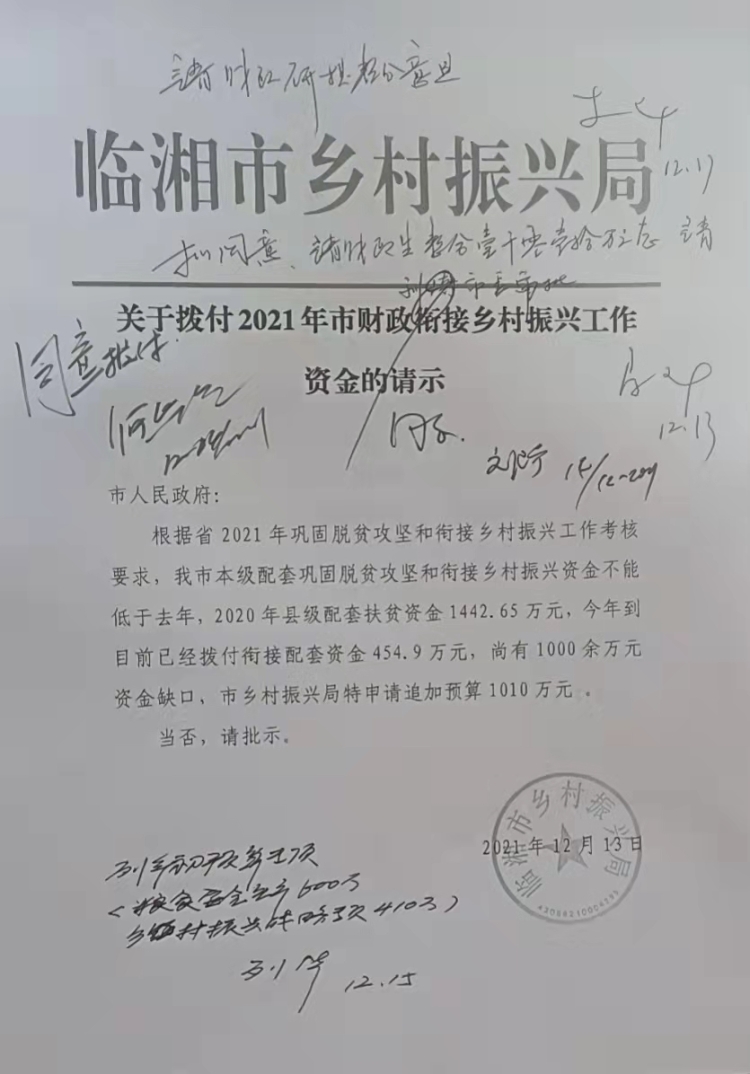 请财政研提部分意见
12.17
临湘市乡村振兴局
拟同意、请财政统整合壹千零壹拾万元 请
市长审批
关于拨付2021年市财政衔接乡村振兴工作
资金的请示
同意拨付.
12.13
14/12-2021
市人民政府：
根据省2021年巩固脱贫攻坚和衔接乡村振兴工作考核
要求，我市本级配套巩固脱贫攻坚和衔接乡村振兴资金不能
低于去年，2020年县级配套扶贫资金1442.65万元，今年到
目前已经拨付衔接配套资金454.9万元，尚有1000余万元
资金缺口、市乡村振兴局特申请追加预算1010万元 。
当否，请批示。
临湘市乡村振兴局
2021年12月13日
列年初预算专项
（粮食安全生产600万
乡镇村振兴战略专项410万）
12.15